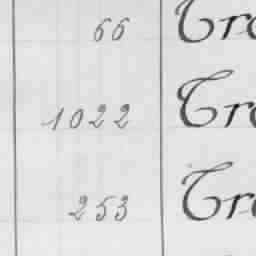 66 Tro
1022 Tro
253 Tro